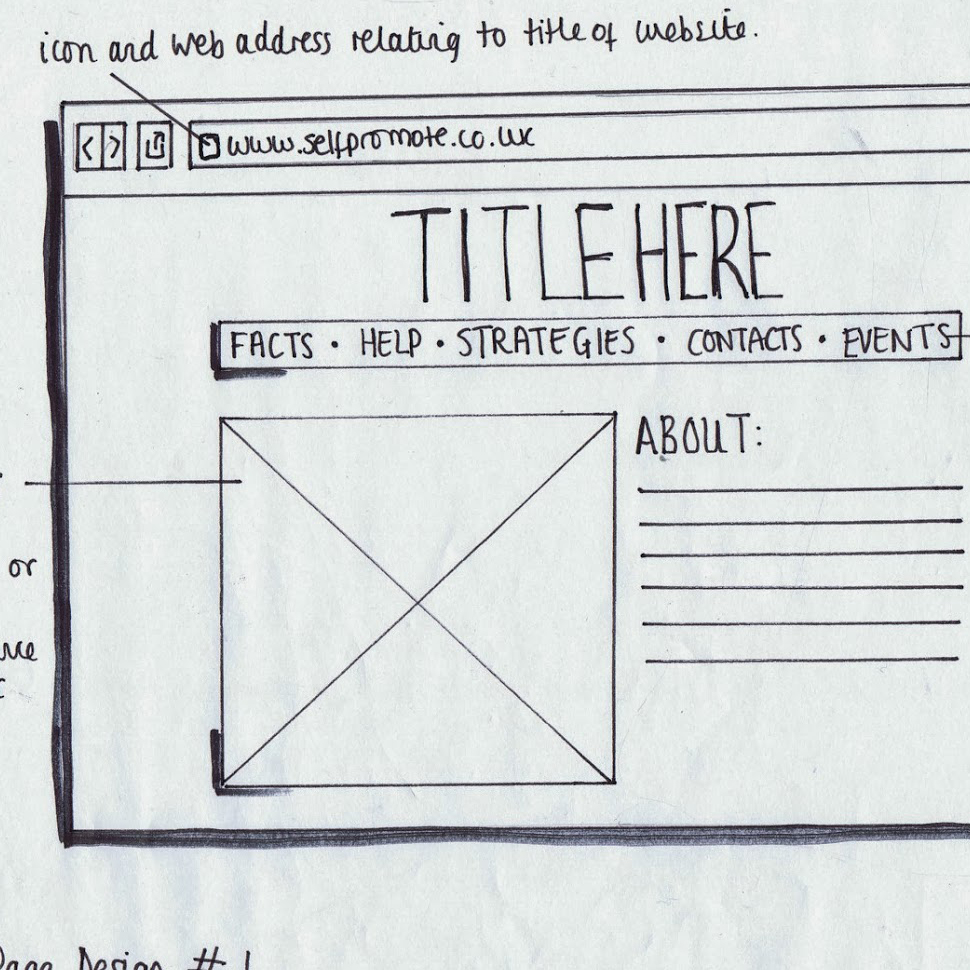 icon and web address relating to title of website.
www.selfpromote.co.uk
TITLE HERE
FACTS • HELP • STRATEGIES • CONTACTS • EVENTS
ABOUT:
or
Page Design #1